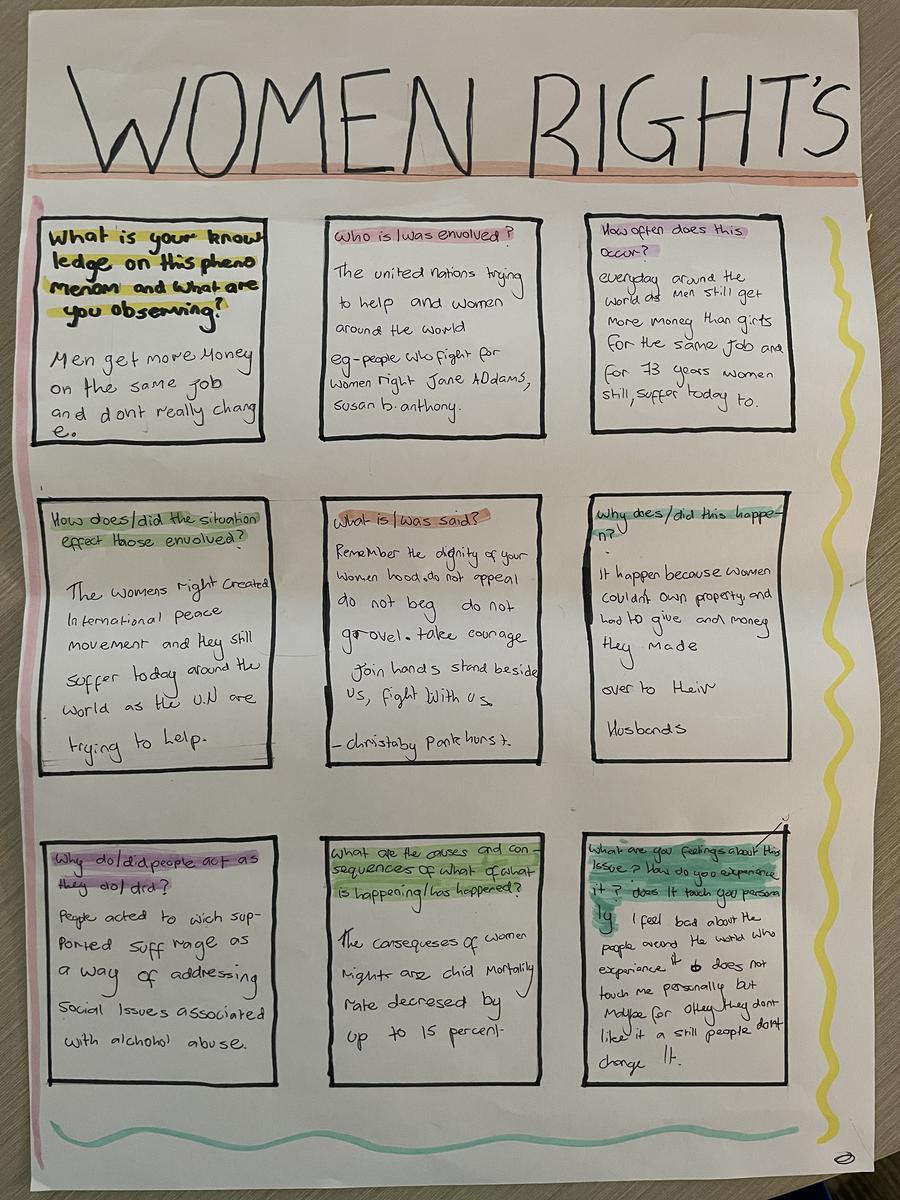 WOMEN RIGHT'S
What is your know
ledge on this pheno
menom and what are
you observing?
Men get more Money
on the same job
and dont really chang
e.
Who is/was envolved?
The united nations trying
to help and women
around the world
eg-people who fight for
women right Jane ADdams,
susan b. anthony.
How often does this
occur?
everyday around the
world as Men still get
more money than girls
for the same job and
for 73 years women
still, suffer today to.
How does/did the situation
effect those envolved?
The womens right created
International peace
movement and they still
suffer today around the
world as the U.N are
trying to help.
What is/was said?
Remember the dignity of your
women hood. do not appeal
do not beg do not
grovel. take courage
Join hands stand beside
us, fight with us
- christaby Pankhurst.
Why does/did this happe-
n?
it happen because women
couldn't own property, and
had to give and money
they made
over to their
Husbands
Why do/did people act as
they do/did?
People acted to wich sup-
ported suffrage as
a way of addressing
social Issues associated
with alchohol abuse.
What are the causes and con-
sequences of what of what
is happening/has happened?
The conseqeuses of women
rights are chid mortality
rate decresed by
up to 15 percent-
What are you feelings about this
issue? How do you experience
it? does It touch you person
ly I feel bad about the
people around the world who
experience it does not
touch me personally but
Maybe for they dont
like it a still people dont
change It.